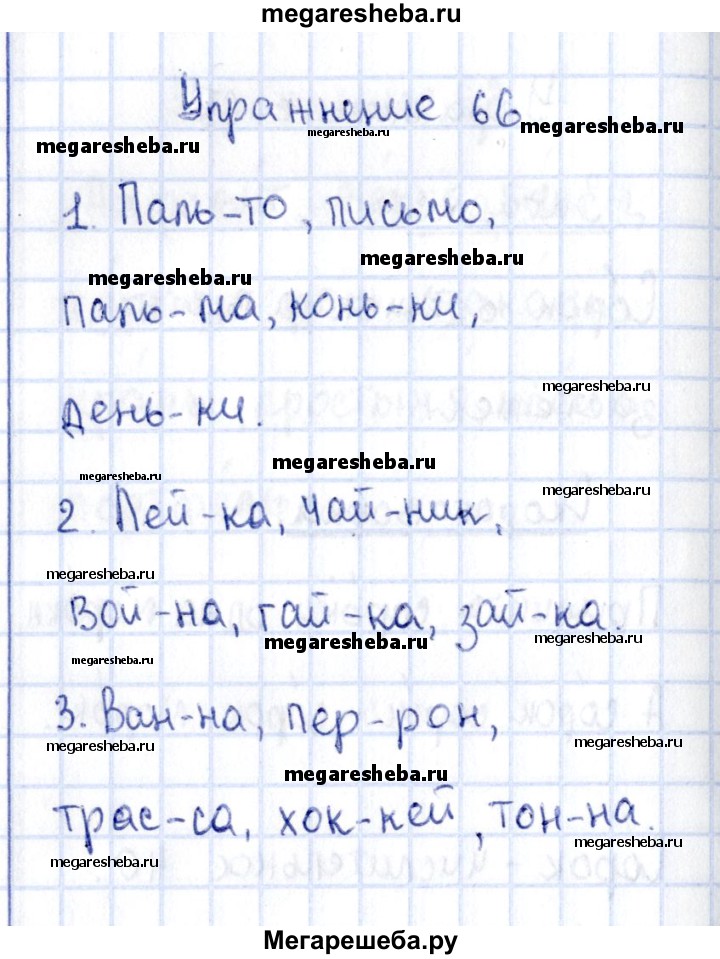 megaresheba.ru
Упражнение 66
megaresheba.ru
megaresheba.ru
megaresheba.ru
1. Паль-то, письмо,
megaresheba.ru
megaresheba.ru
паль-ма, конь-ки,
megaresheba.ru
день-ки.
megaresheba.ru
megaresheba.ru
megaresheba.ru
2. Лей-ка, чай-ник,
megaresheba.ru
вой-на, гай-ка, зай-ка.
megaresheba.ru
megaresheba.ru
megaresheba.ru
3. Ван-на, пер-рон,
megaresheba.ru
megaresheba.ru
megaresheba.ru
трас-са, хок-кей, тон-на.
megaresheba.ru
megaresheba.ru
Мегарешеба.ру